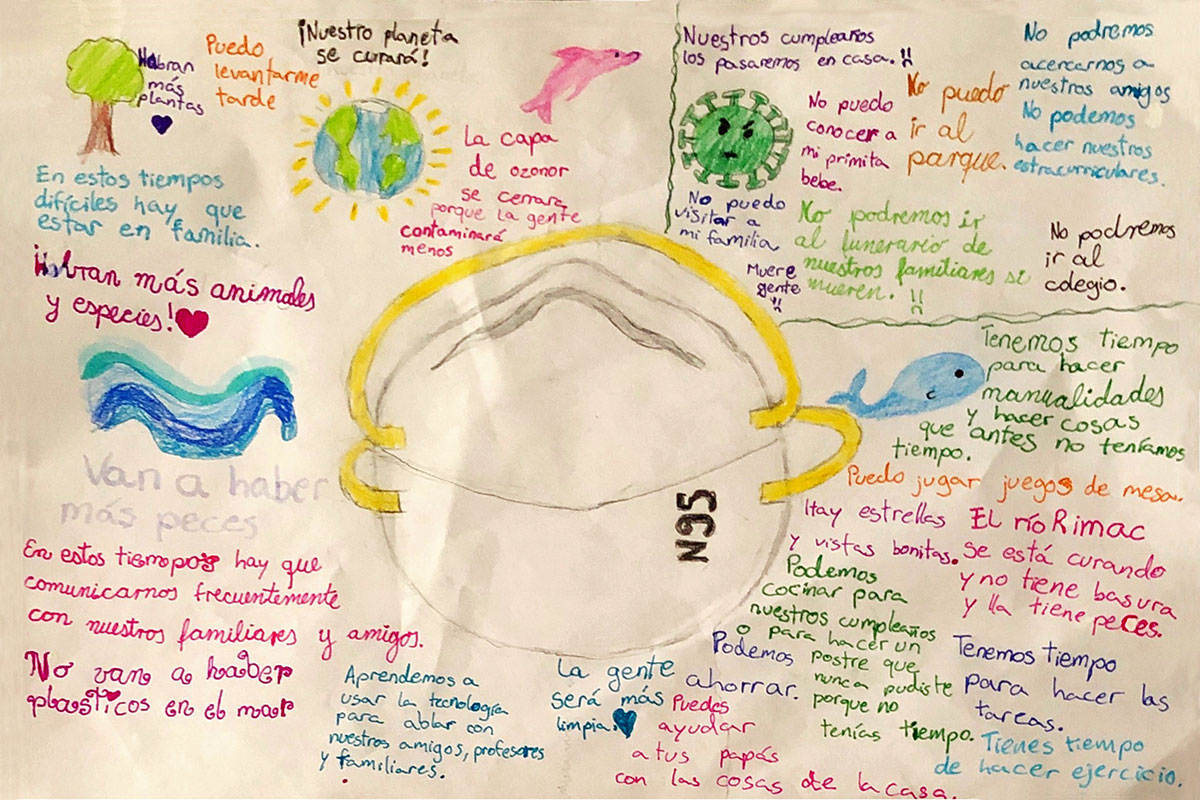 Habran
más
plantas
Puedo
levantarme
tarde
¡Nuestro planeta
se curará!
La capa
de ozonor
se cerrara
porque la gente
contaminará
menos
En estos tiempos
difíciles hay que
estar en familia.
¡Habran más animales
y especies!
Van a haber
más peces
En estos tiempos hay que
comunicarnos frecuentemente
con nuestros familiares y amigos.
No van a haber
plasticos en el mar
Aprendemos a
usar la tecnología
para ablar con
nuestros amigos, profesores
y familiares.
La gente
será más
limpia.
Nuestros cumpleaños
los pasaremos en casa.
No puedo
conocer a
mi primita
bebe.
No puedo
ir al
parque.
No podremos
acercarnos a
nuestros amigos
No podemos
hacer nuestros
extracurriculares.
No puedo
visitar a
mi familia
Muere
gente
No podremos ir
al lunerario de
nuestros familiares se
mueren.
No podremos
ir al
colegio.
N95
Tenemos tiempo
para hacer
manualidades
y hacer cosas
que antes no teníamos
tiempo.
Puedo jugar juegos de mesa.
Hay estrellas
y vistas bonitas.
EL río Rimac
se está curando
y no tiene basura
y lla tiene peces.
Podemos
cocinar para
nuestros cumpleaños
o para hacer un
postre que
nunca pudiste
porque no
tenías tiempo.
Podemos
ahorrar.
Puedes
ayudar
a tus papás
con las cosas de la casa.
Tenemos tiempo
para hacer las
tareas.
Tienes tiempo
de hacer ejercicio.